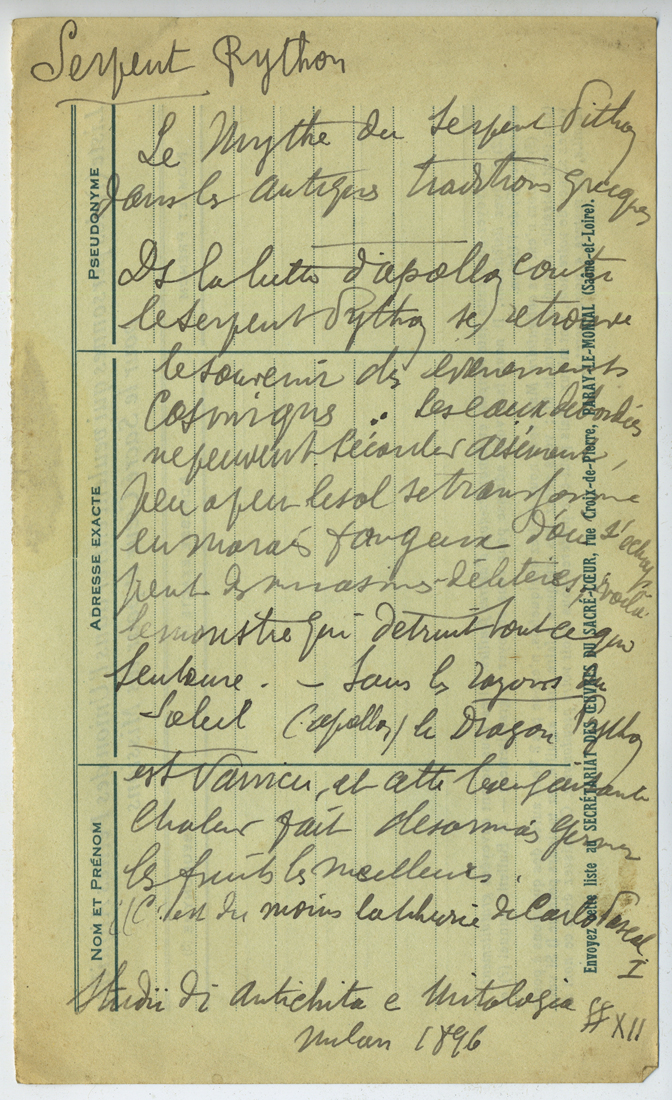 Serpent Python
Le Mythe du Serpent Pithon
dans les antiques traditions grecques
Ds la lutte d'apollon contre
le serpent Python se) retrouve
le souvenir des evenements
Cosmiques .. Les eaux debordées
ne peuvent s'écouler aisément,
peu a peu le sol se transforme
en marais fangeux d'ou s'échap
pent des miasmes délétères, voilà
le monstre qui détruit tout ce qui
l'entoure. – Sous les rayons du
Soleil (apollon) le Dragon Python
est vaincu, et cette bienfaisante
Chaleur fait desormais germer
les fruits les meilleurs.
(C'est du moins la théorie de Carlo Pascal
I
Studii di antichita e Mitologia
§§ XII
Milan 1896
PSEUDONYME
ADRESSE EXACTE
NOM ET PRÉNOM
Envoyez cette liste au SECRÉTARIAT DES ŒUVRES DU SACRÉ-CŒUR, rue Croix-de-Pierre, PARAY-LE-MONIAL (Saône-et-Loire).